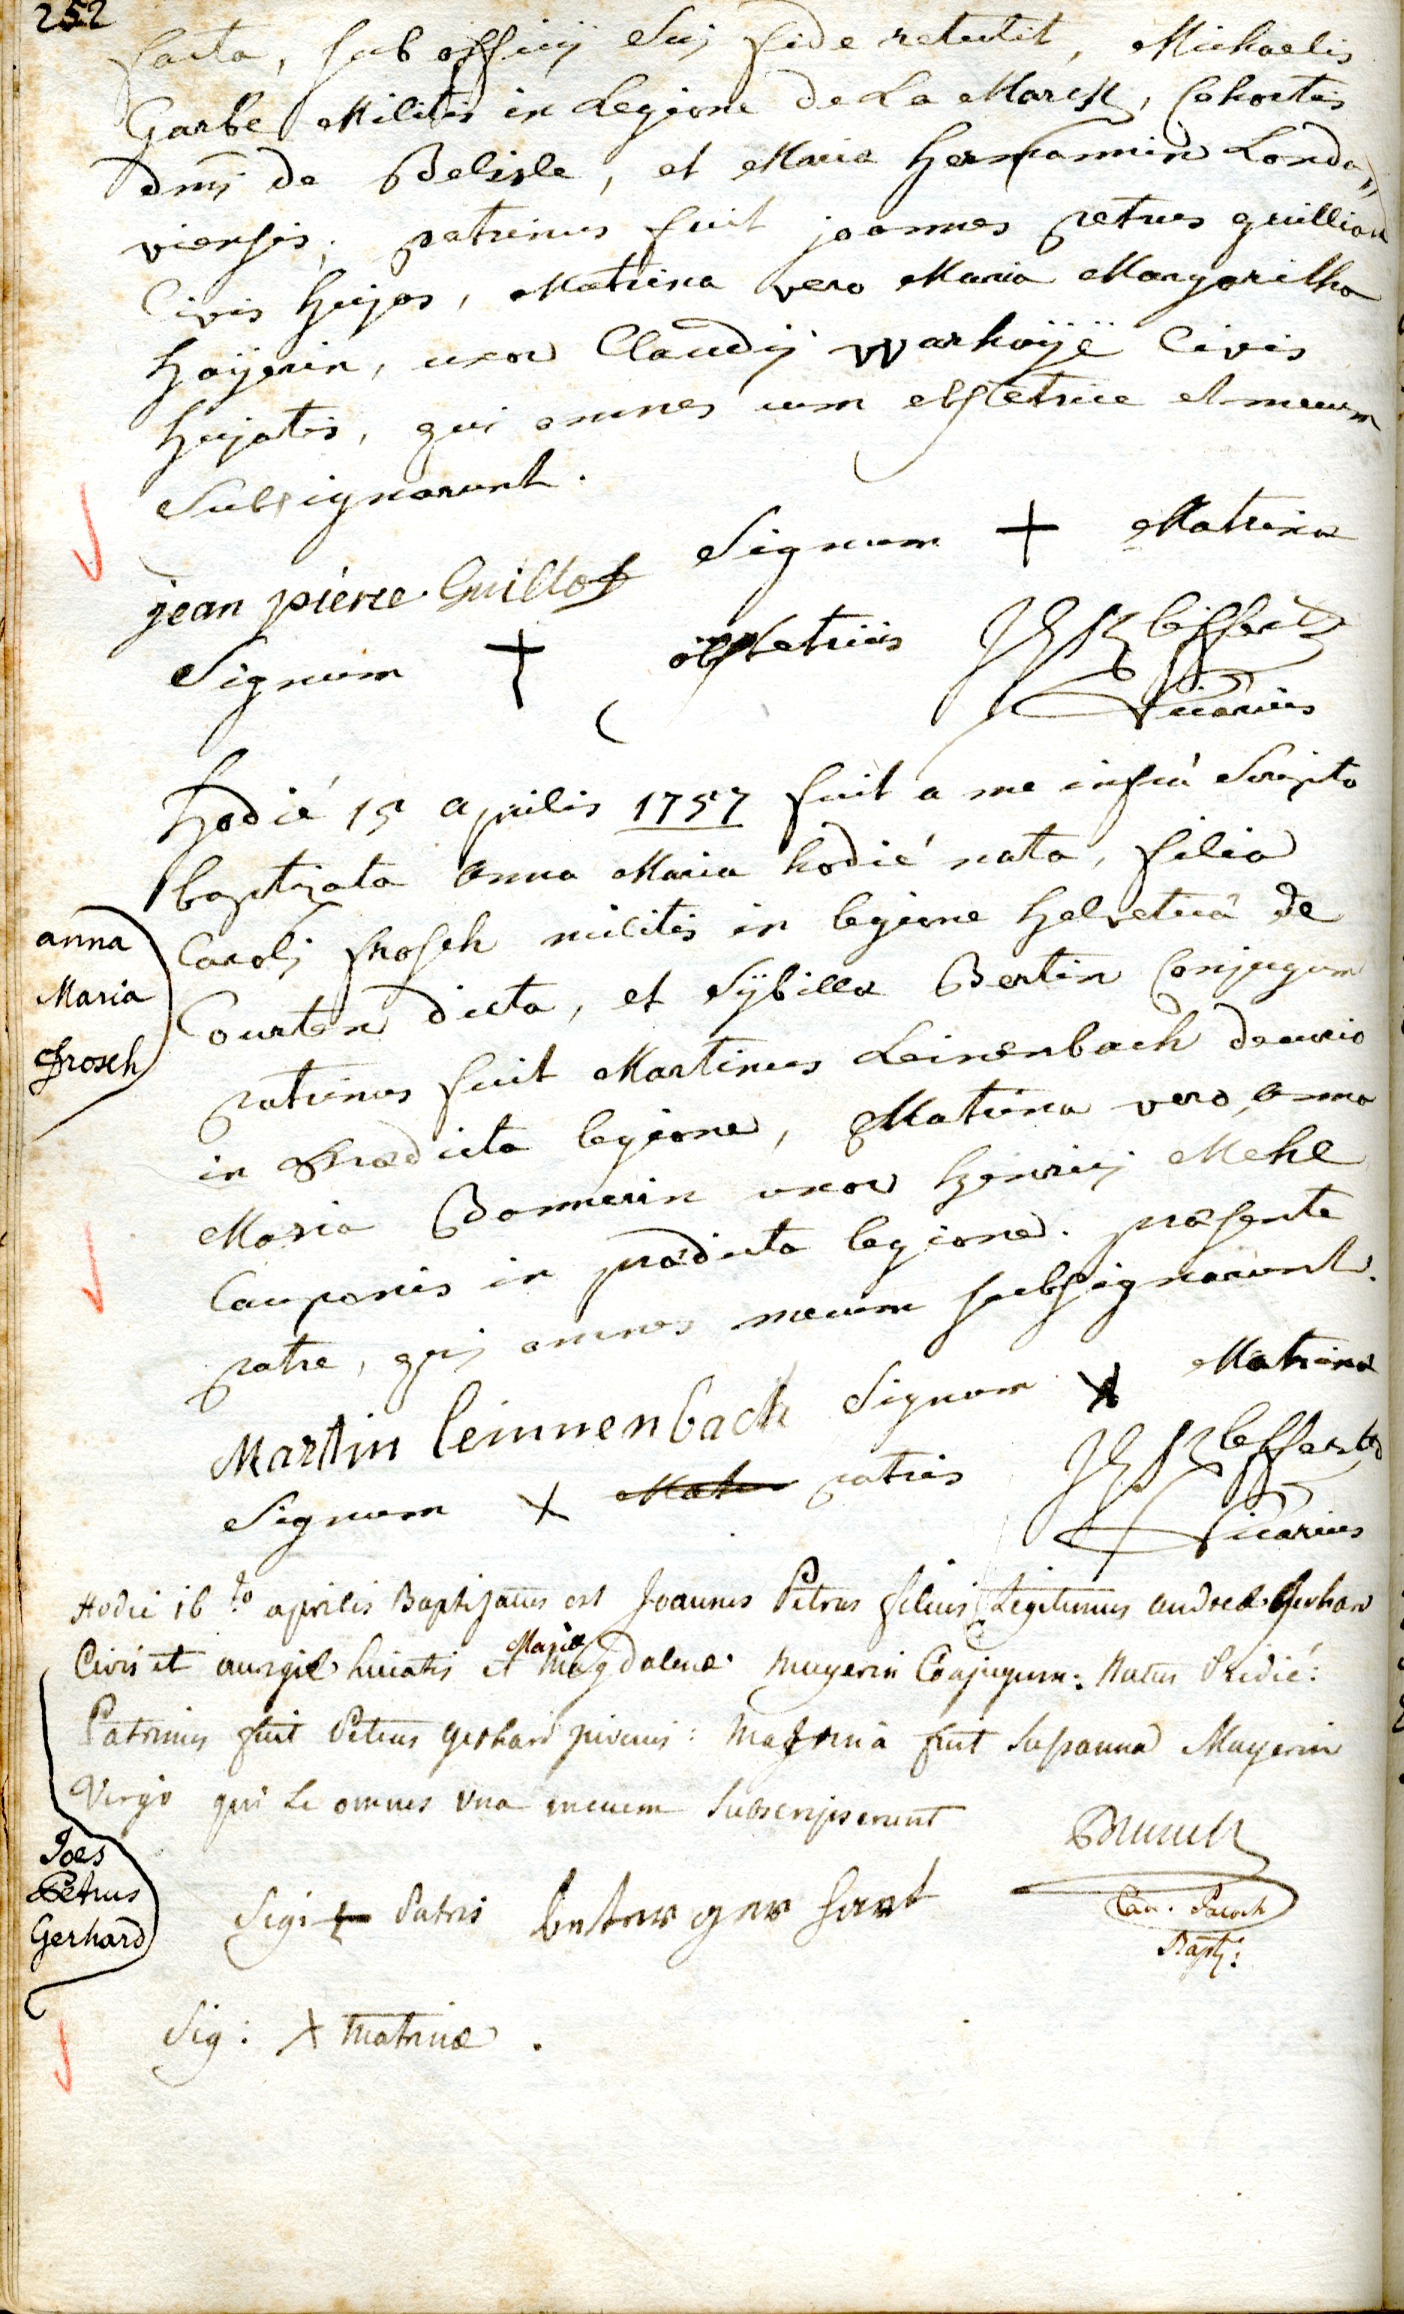 252
facta, sub officij Suj fide retulit, Michaelis
Garbe Militis in Legione De La Marck, Cohortis
dnj de Belisle, et Maria hermannin Londa„
viensis, patrinus fuit joannes petrus guillion
Civis hujas, Matrina vero Maria Margaritha
hayerin, uxor Claudij warhoÿe Civis
hujatis, qui omnes cum obstetrice et mecum
Subsignarunt.
jean pierre Guillot Signum + Matrina
Signum + obstetricis Keiffer
Vicarius
hodié 15 aprilis 1757 fuit a me infrà Scripto
baptizata anna Maria hodié nata, filia
anna
Maria
frosch
Caroli frosch militis in legione helveticâ de
Courten dicta, et Sÿbilla Bertin Conjugum
patrinus fuit Martinus Leinenbach decurio
in prædicta legione, Matrina vero anna
Maria Bonnerin uxor henrici Mehl
Cauponis in prædicta legione. præsente
patre, qui omnes mecum subsignarunt.
Martin leinnenbach Signum X Matrina
Signum X patris
Vicarius
Hodie 16to aprilis Baptizatus est Joannes Petrus filius Legitimus andreæ Gerhard
Civis et aurigæ huiatis et Mariæ Magdalenæ Mayerin Conjugum: Natus Pridié:
Patrinus fuit Petrus gerhard juvenis: Matrina fuit Susanna Mayerin
Virgo qui se omnes una mecum Subscripserunt
Joes
Petrus
Gerhard
Sig: + Patris
Can. Paroch
Bapt:
Sig: X Matrinæ.